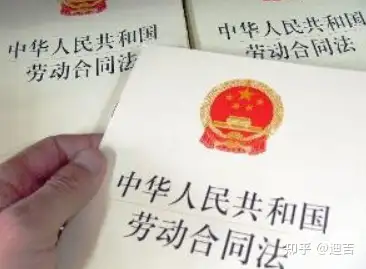 中华人民共和国
劳动合同法
中华人民共和国
劳动合同法
中华人民共和国
劳动合同法
知乎 @迪吉